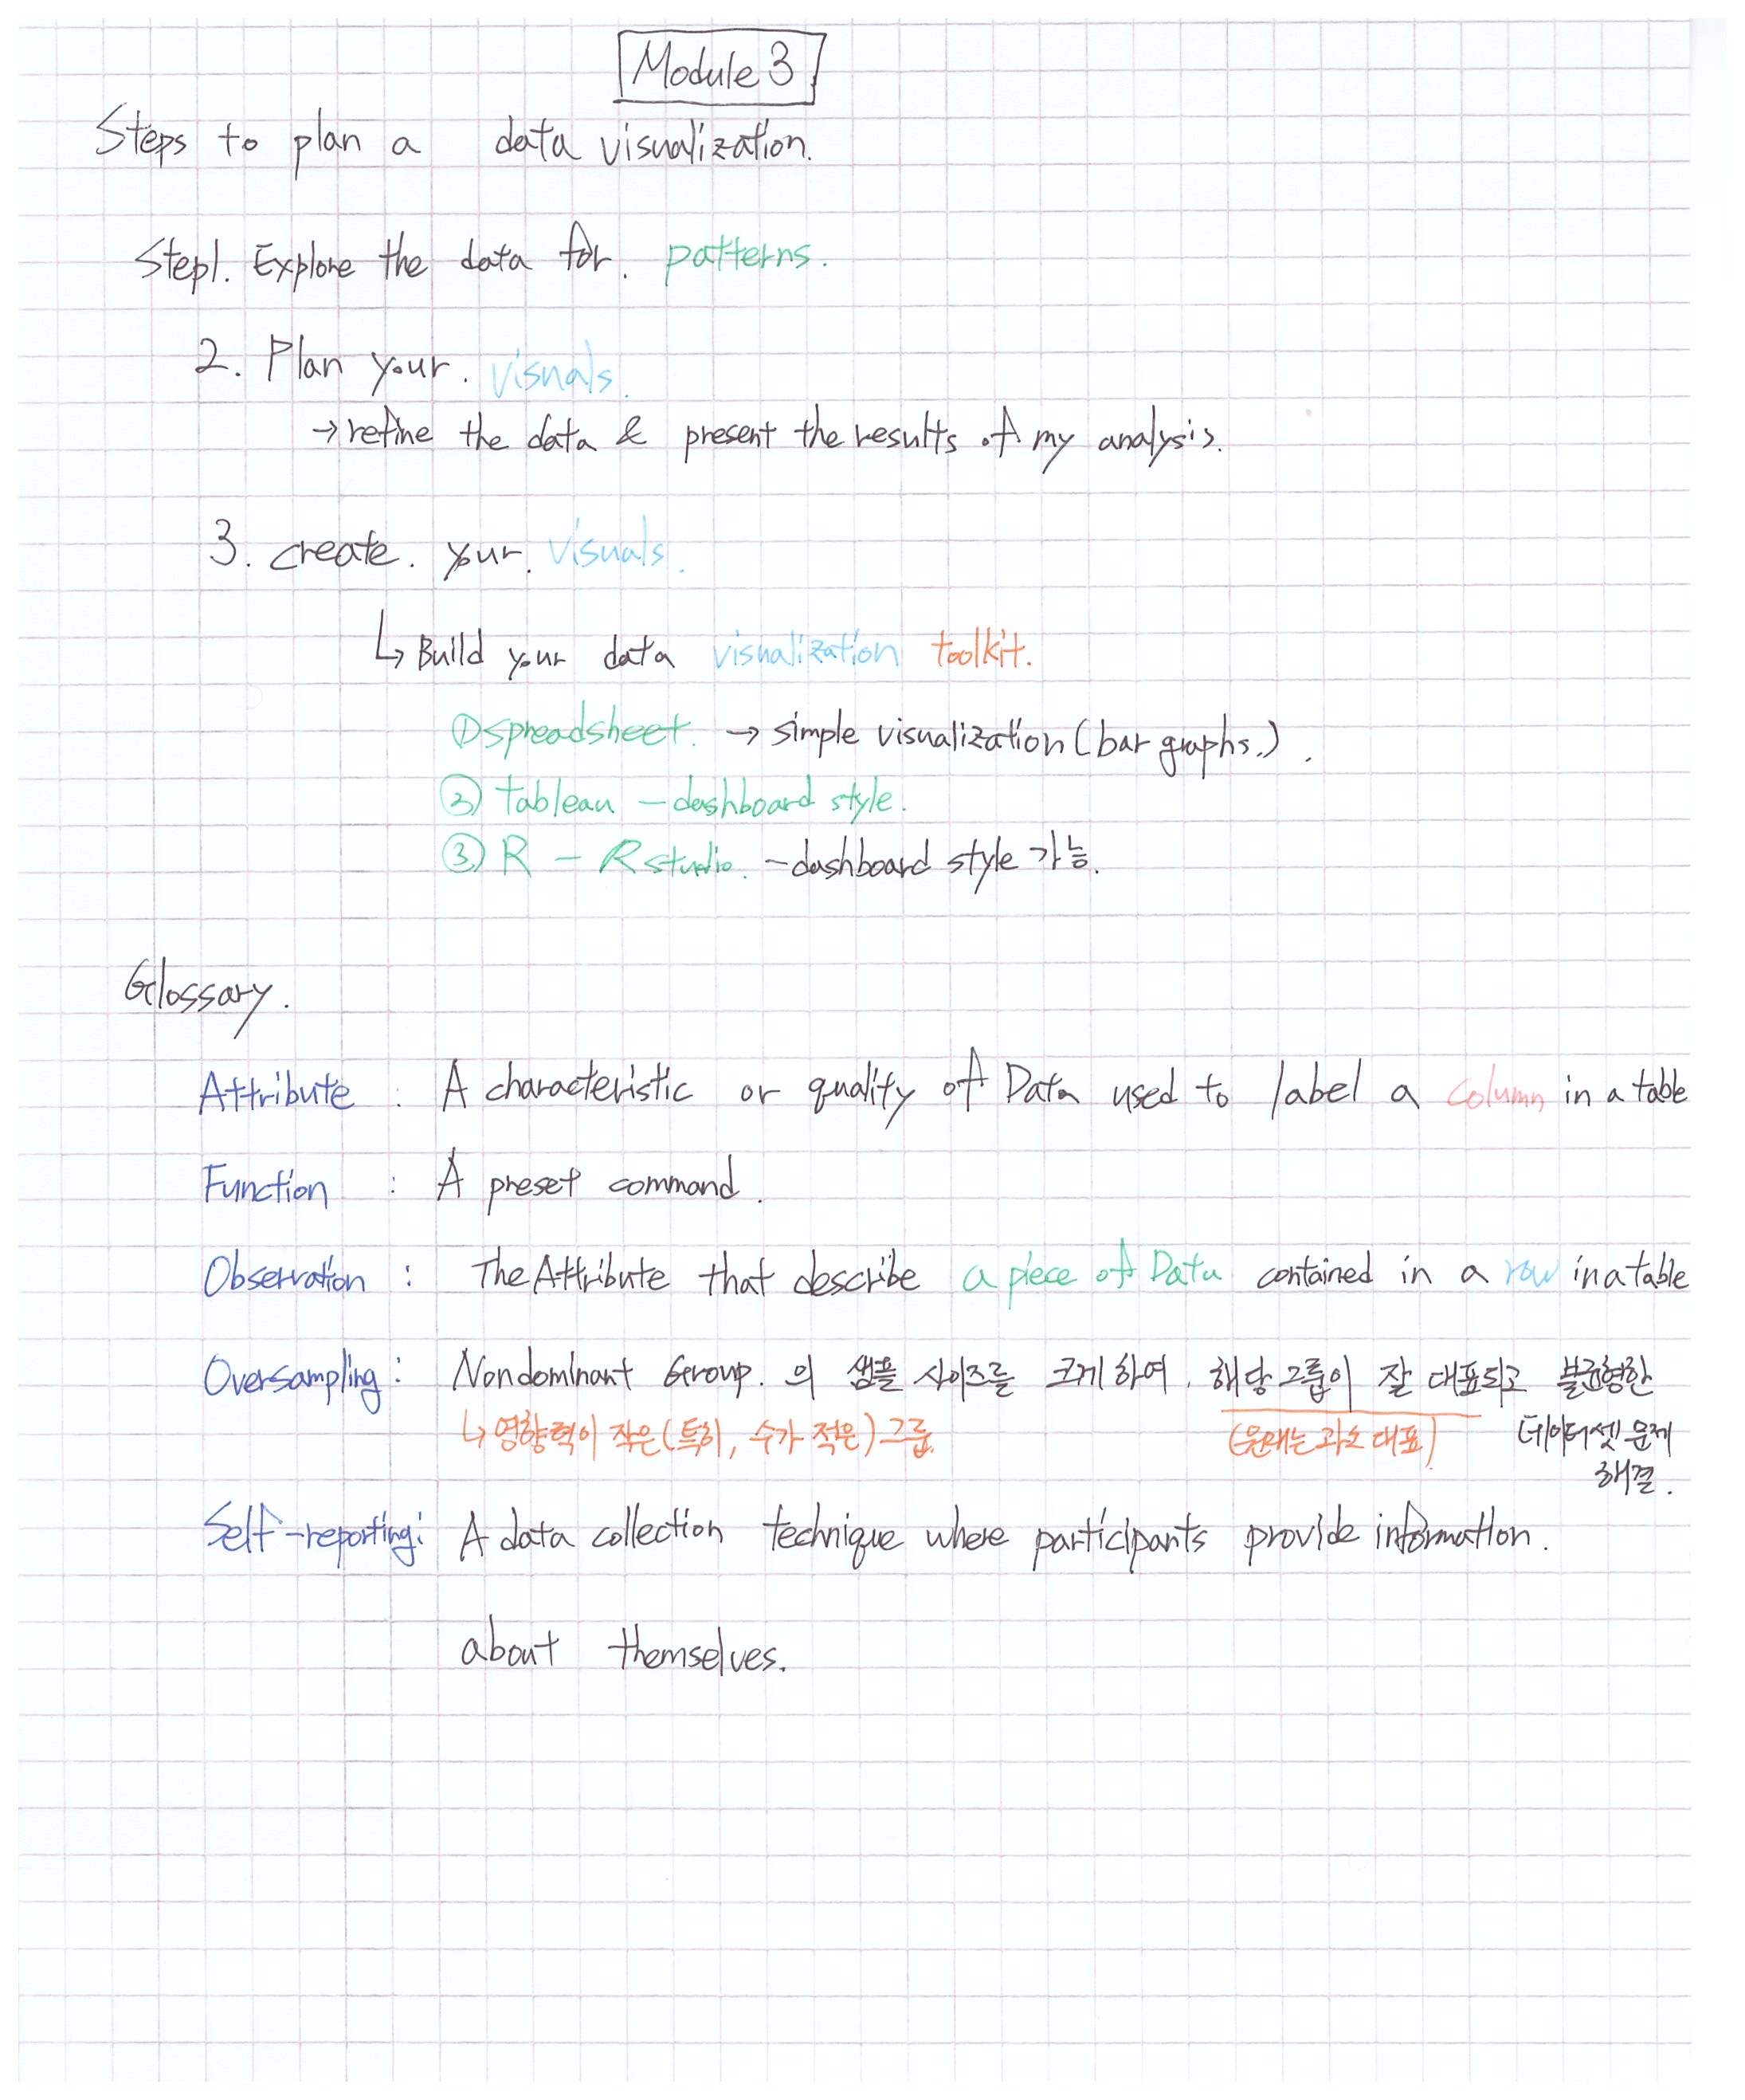 Module 3
Steps to plan a data visualization.
Step1. Explore the data for. patterns.
2. Plan your. visuals.
→ refine the data & present the results of my analysis.
3. create. your. visuals.
↳ Build your data visualization toolkit.
① spreadsheet. → simple visualization (bar graphs.).
② tableau – dashboard style.
③ R – R studio. – dashboard style 가능.
Glossary.
Attribute : A characteristic or quality of Data used to label a column in a table
Function : A preset command.
Observation : The Attribute that describe a piece of Data contained in a row in a table
Oversampling : Nondominant Group. 의 샘플 사이즈를 크게 하여. 해당 그룹이 잘 대표되고 불균형한
↳ 영향력이 작은 (특히, 수가 적은) 그룹. (원래는 과소 대표) 데이터셋 문제
해결.
Self-reporting : A data collection technique where participants provide information.
about themselves.